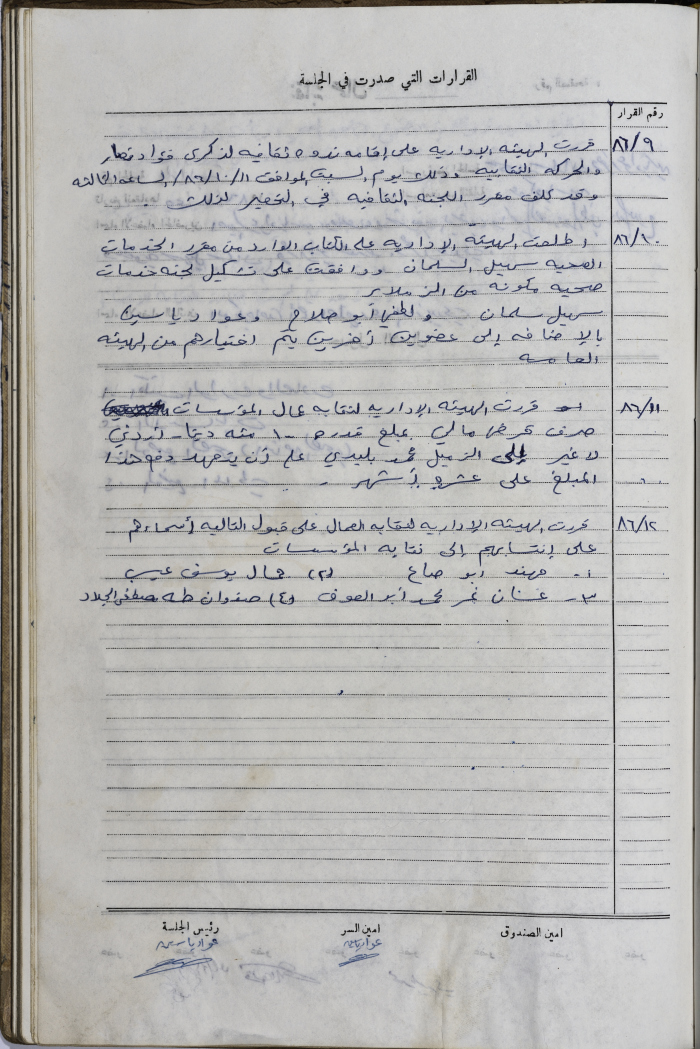 القرارات التي صدرت في الجلسة
رقم القرار
٨٦/٩ قررت الهيئه الاداريه على إقامه ندوه ثقافيه لذكرى فؤاد نصار
والحركه النقابية وذلك يوم السبت الموافق ٨٦/١٠/١١ الساعه الثالثه
وقد كلف مقرر اللجنه الثقافيه في التحضير لذلك
٨٦/١٠ اطلعت الهيئة الإداريه على الكتاب الوارد من مقرر الخدمات
الصحيه سهيل السلمان ووافقت على تشكيل لجنه خدمات
صحيه مكونه من الزملاء
سهيل سلمان ولطفي أبو صلاح وعواد ياسين
بالاضافه إلى عضوين أخرين يتم اختيارهم من الهيئه
العامه
٨٦/١١ قررت الهيئة الإداريه لنقابه عمال المؤسسات
صرف قرض مالي بمبلغ قدره ١٠٠ مئه دينار أردني
لاغير إلى الزميل محمد بليدي على أن يتعهد دفع هذا
المبلغ على عشرة أشهر
٨٦/١٢ قررت الهيئه الاداريه لنقابه العمال على قبول التاليه أسماءهم
على إنتسابهم إلى نقابه المؤسسات
١- مهند ابو صاع (٢) جمال يوسف
٣- غسان نمر محمد أبو العوف (٤) صفوان طه مصطفى الجلاد
امين الصندوق
امين السر
رئيس الجلسة
عواد ياسين
عواد ياسين